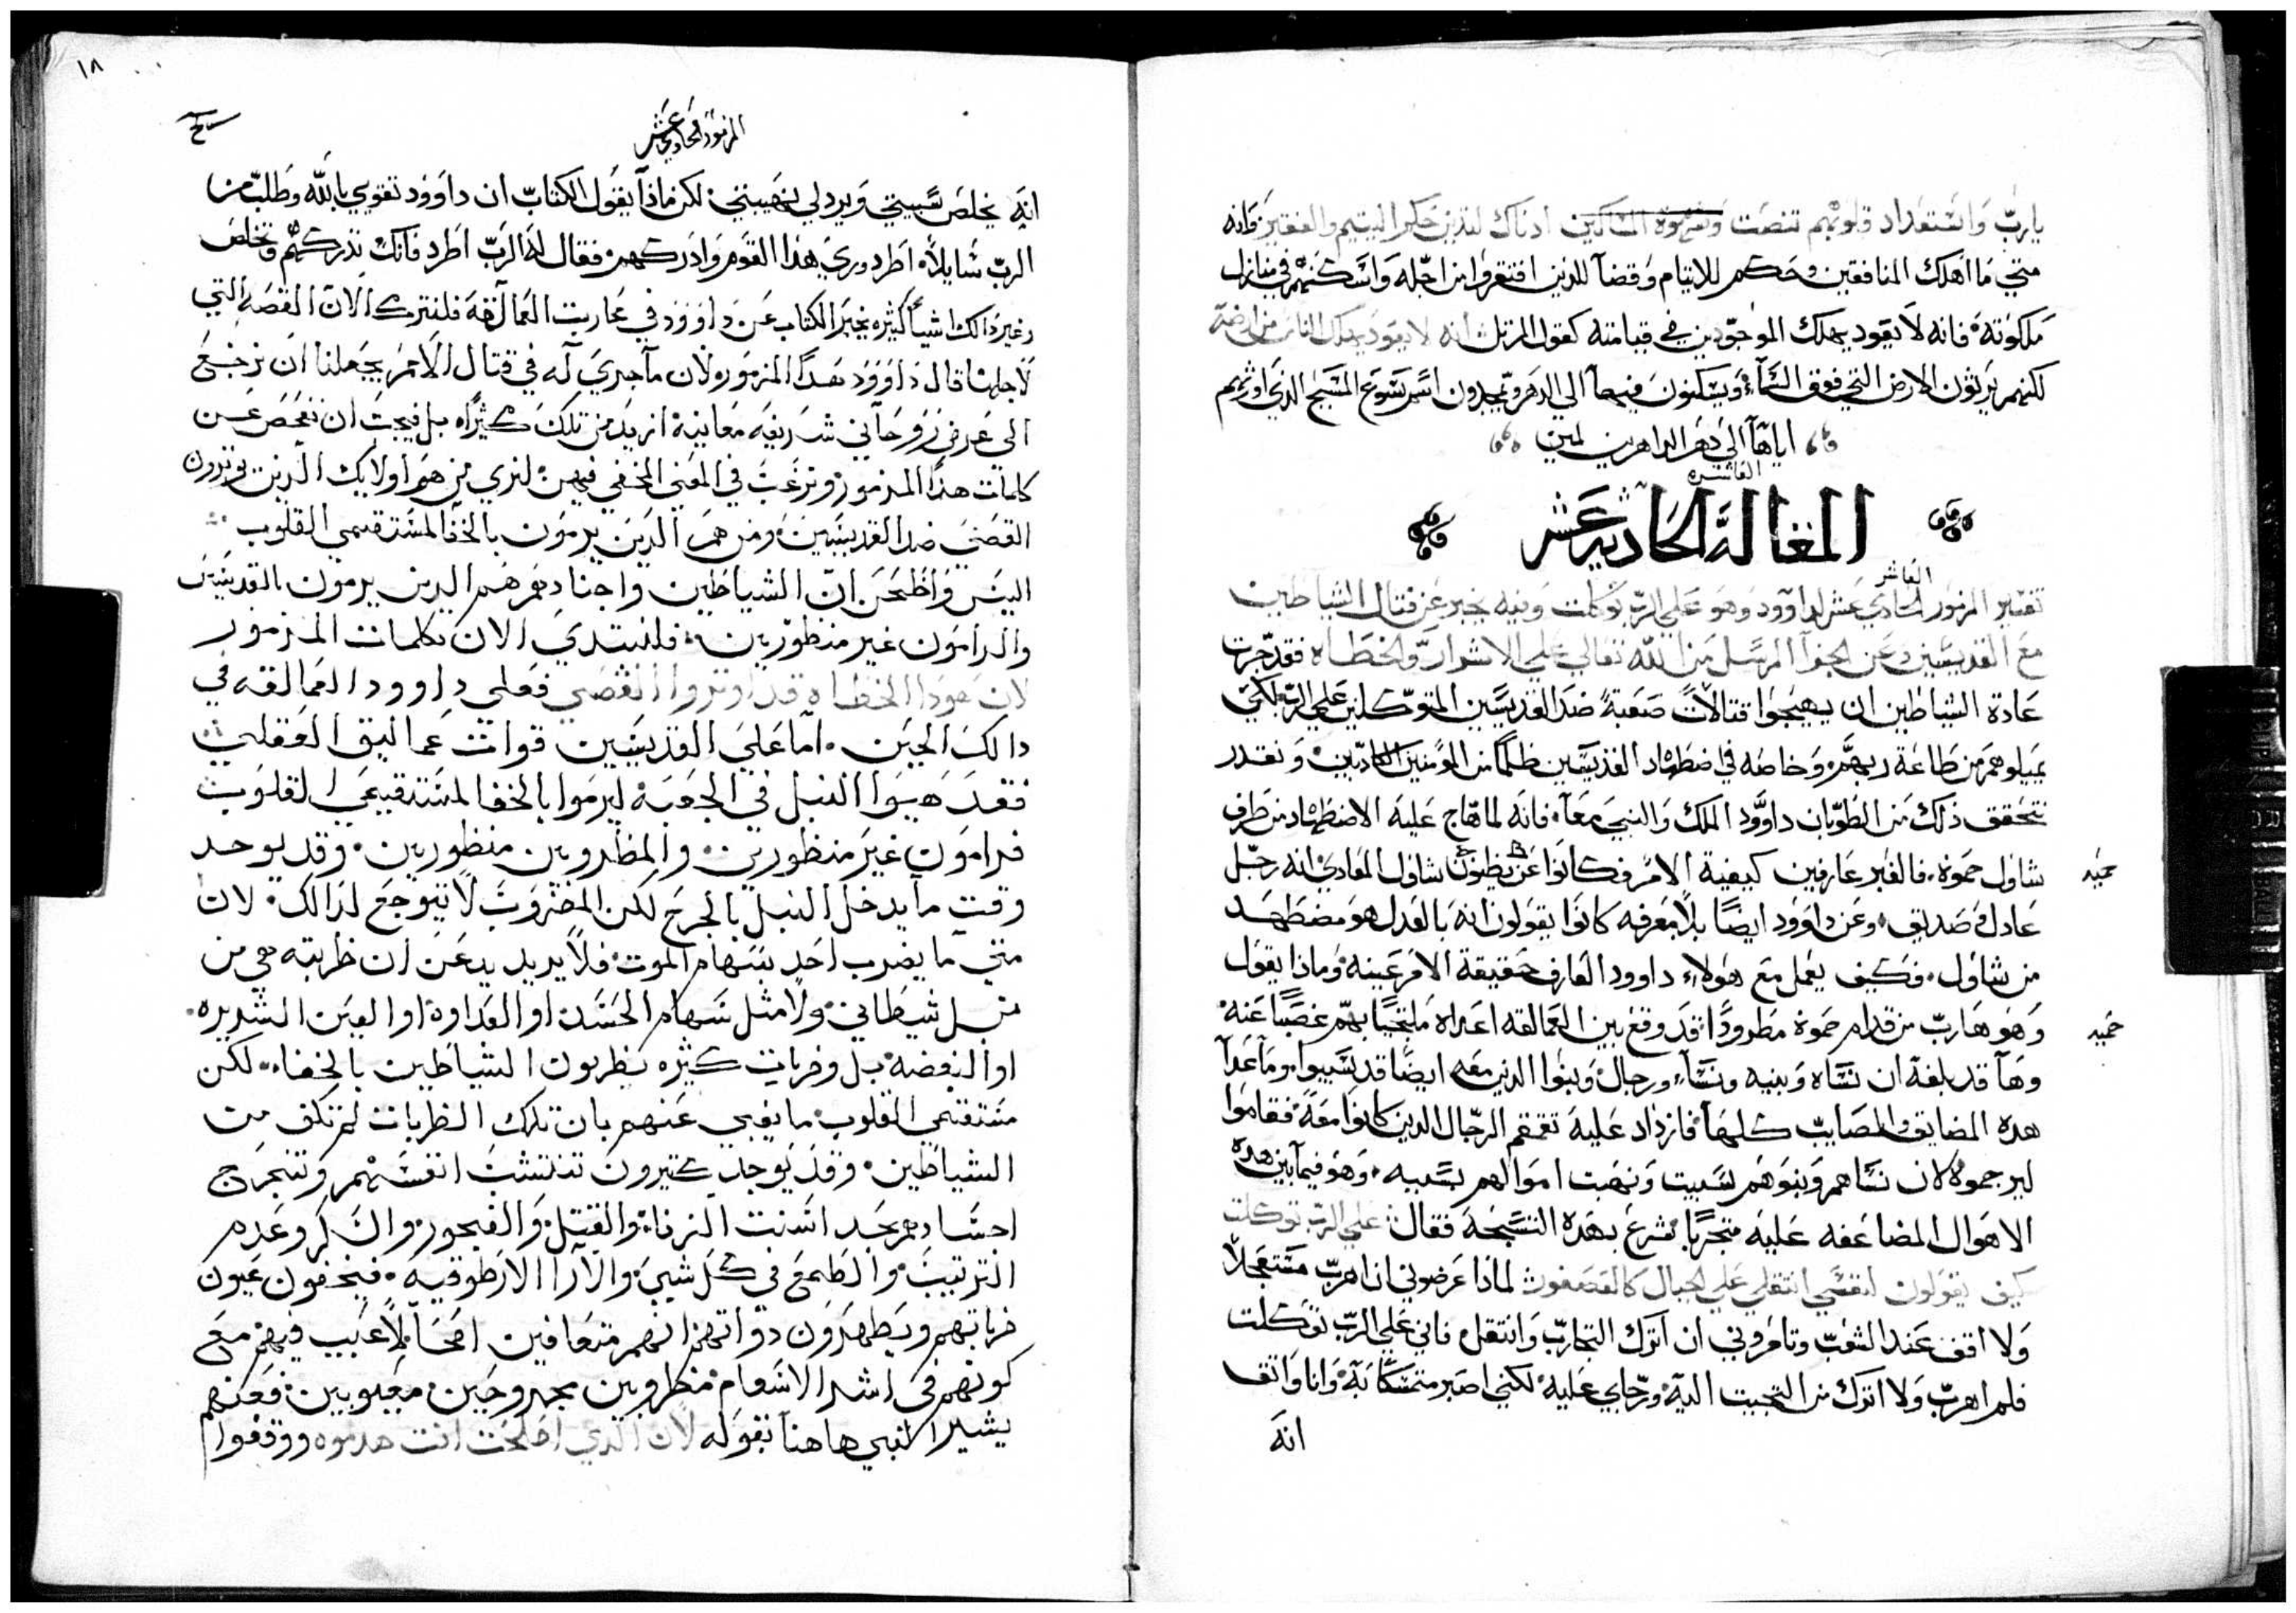 يارب واستعداد قلوبهم تنصت وشهوة المساكين ادناك لتدين حكم اليتيم والفقير فانه
متي ما اهلك المنافقين وحكم للايتام وقضا للذين افتقروا من اجله واسكنهم في منازل
ملكوته فانه لا يعود يهلك الموحودين في قيامته كقول المرتل انه لا يعود يهلك الناس من ارضه
لكنهم يرثون الارض التي فوق السمآء ويسكنون فيها الي الدهر ويمجدون اسم يسوع المسيح الذي اورثهم
اياها الي دهر الداهرين امين
العاشره
المقالة الحاديه عشر
العاشر
تفسير المزمور الحادي عشر لداوود وهو علي الرب توكلت وفيه يخبر عن قتال الشياطين
مع القديسين وعن الجزآ المرسل من الله تعالي علي الاشرار والخطاه فقد جرت
عادة الشياطين ان يهيجوا قتالات صعبة ضد القديسين المتوكلين علي الرب لكي
يميلوهم من طاعة ربهم وخاصه في اضطهاد القديسين ظلما من المومنين الكادبين ونقدر
نتحقق ذلك من الطوبان داوود الملك والنبي معا فانه لما هاج عليه الاضطهاد من طرف
شاول حموه فالغير عارفين كيفية الامر فكانوا يظنون عن شاول المعادي انه رجل
عادل صديق وعن داوود ايضا بلا معرفه كانوا يقولون انه بالعدل هو مضطهد
من شاول وكيف يعمل مع هولاء داوود العارف حقيقة الامر عينه وماذا يقول
وهو هارب من قدام حموه مطرودا قد وقع بين العمالقه اعداه ملتجيا بهم غصبا عنه
وها قد بلغه ان نساه وبنيه ونسآء ورجال وبنوا الدين معه ايضا قد تسبيوا وما عدا
هده المضايق والمصايب كلها فازداد عليه تقمقم الرجال الدين كانوا معه فقاموا
ليرجموه لان نساهم وبنوهم تسبيت ونهبت اموالهم بسببه وهو فيما بين هده
الاهوال المضاعفه عليه متجربا شرع بهده التسبحة فقال علي الرب توكلت
كيف تقولون لنفسي انتقلي علي الجبال كالعصفور لماذا عرضوني ان اهرب مستعجلا
ولا اقف عند التعب وتامروني ان اترك التجارب وانتقل فاني علي الرب توكلت
فلم اهرب ولا اترك من التجيت اليه ورجاي عليه لكني اصبر متمسكا به وانا واثق
انه
حميد
حميد
١٨
المزمور الحادي عشر
انه يخلص سبيتي ويرد لي نهيبتي لكن ماذا يقول الكتاب ان داوود تقوي بالله وطلب من
الرب سايلا اطرد وري هذا القوم وادركهم فقال له الرب اطرد فانك تدركهم وتخلص
وغير دالك اشيآ كثيره يخبر الكتاب عن داوود في محاربت العمالقه فلنترك الان القصه التي
لاجلها قال داوود هدا المزمور ولان ما جري له في قتال الامم يجعلنا ان نرجع
الي غرض روحاني شريفه معانيه ازيد من تلك كثيرا بل فيجب ان نفحص عن
كلمات هذا المزمور ونرغب في المعني المخفي فيهن لنري من هو اولايك الدين يوترون
القصي ضد القديسين ومن هم الدين يرمون بالخفا لمستقيمي القلوب
اليس واظحن ان الشياطين واجنادهم هم الدين يرمون القديسين
والرامون غير منظورين فلنبتدي الان بكلمات المزمور
لان هودا الخطاه قد اوتروا القصي فعلي داوود العمالقه في
دالك الحين اما علي القديسين قوات عماليق العقلي
فقد هيوا النبل في الجعبه ليرموا بالخفا لمستقيمي القلوب
فرامون غير منظورين والمظروبين منظورين وقد يوجد
وقت ما يدخل النبل بالجرح لكن المضروب لا يتوجع لدالك لان
متي ما يضرب احد بسهام الموت فلا يريد يدعن ان ظربته هي من
نبل شيطاني ولا مثل سهام الحسد او العداوه او العين الشديده
او البغضه بل وضربات كثيره يظربون الشياطين بالخفاء لكن
مستقيمي القلوب ما يغبي عنهم بان تلك الظربات لم تكف من
الشياطين وقد يوجد كثيرون تدتشب انفسهم وتنجرح
اجسادهم بحد اسنت الزناء والقتل والفجور والسكر وعدم
الترتيب والطمع في كل شي والآرا الارطوقيه فيخفون عيون
ضرباتهم ويظهرون دواتهم انهم متعافين اصحآ بلا عيب فيهم مع
كونهم في اشد الاسقام مظروبين مجروحين معيوبين فعنهم
يشير النبي هاهنا بقوله لان الذي اصلحت انت هدموه ووقفوا